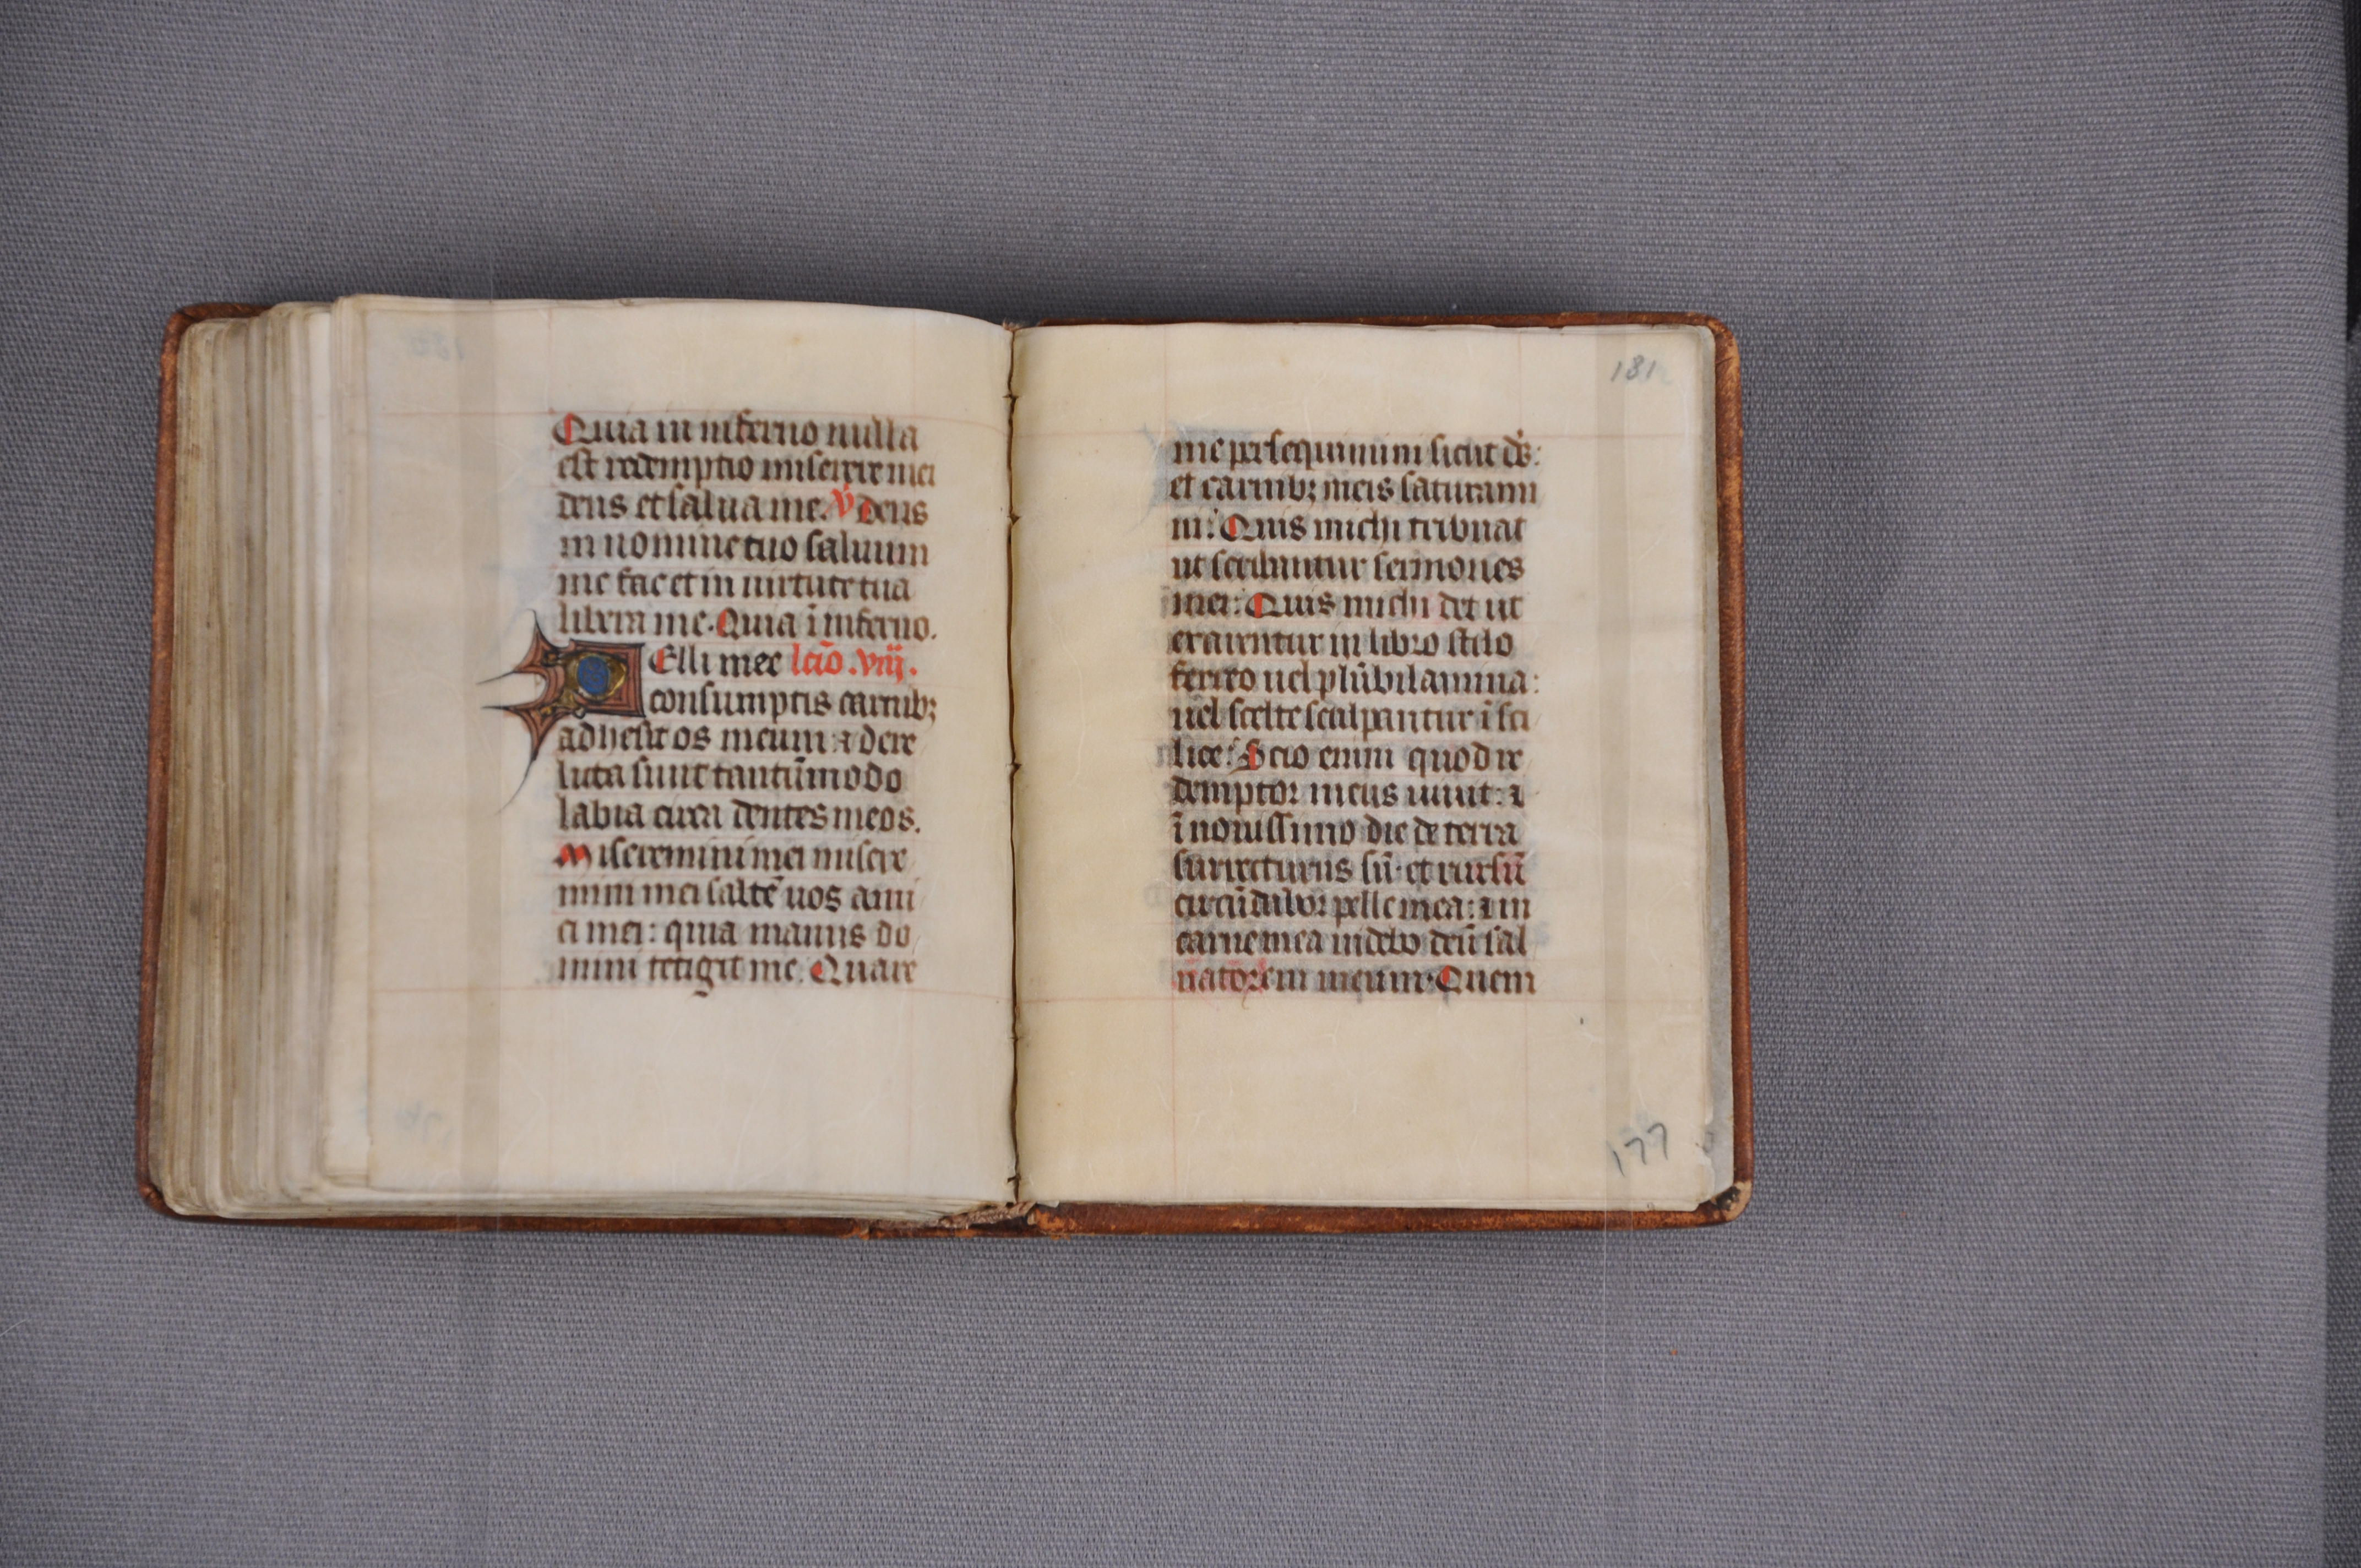 Quia in inferno nulla
est redemptio miserere mei
deus et salua me. V̇ deus
in nomine tuo saluum
me fac et in uirtute tua
libera me. Quia ī inferno.
PElli mee lcıō .viij.
consumptis carnibꝫ
adhesit os meum ⁊ dere
licta sunt tantūmodo
labia circa dentes meos.
Miseremini mei misere
mini mei saltē uos ami
ci mei: quia manus do
mini tetigit me. Quare
181
me persequimini sicut ds̄:
et carnibꝫ meis saturami
ni: Quis michi tribuat
ut scribantur sermones
mei: Quis michi det ut
exarentur in libro stilo
ferreo uel plūbi lamina:
uel scelte sculpantur ī sci
lice: Scio enim quod re
demptor meus uiuit: ⁊
ī nouissimo die de terra
surrecturus sū· et rursū
circūdabor pelle mea: ⁊ in
carne mea uidebo deū sal
uatorem meum· Quem
177